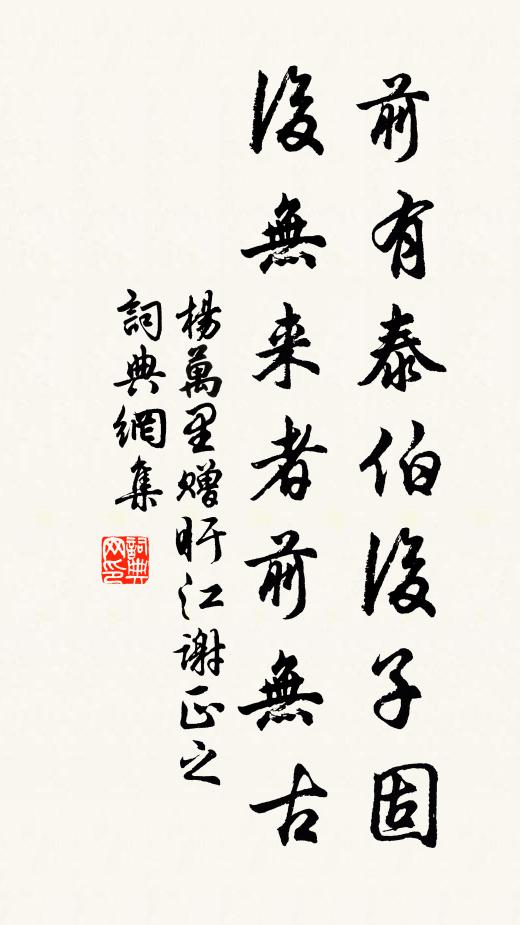 前有泰伯後子固
後無来者前無古
楊萬里贈盱江謝正之
詞典網集
詞典
网印